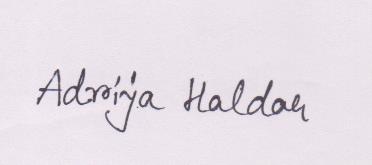 Adrija Haldar